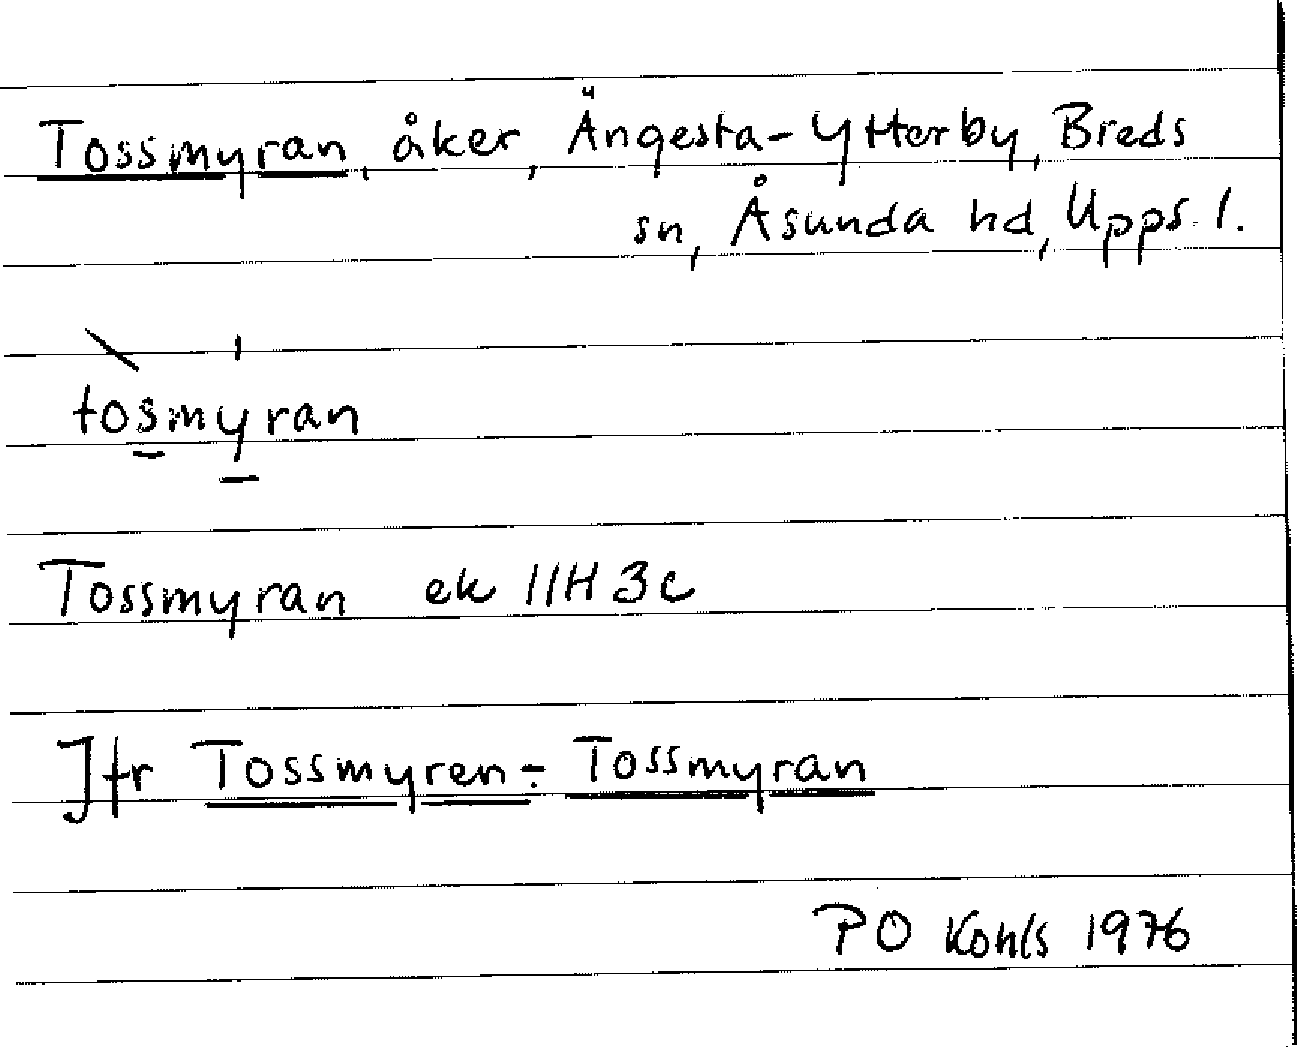 Tossmyran, åker, Ängesta-Ytterby, Breds
sn, Åsunda hd, Upps. l.
tosmyran
Tossmyran ek 11H 3c
Jfr Tossmyren ÷ Tossmyran
PO Kohls 1976